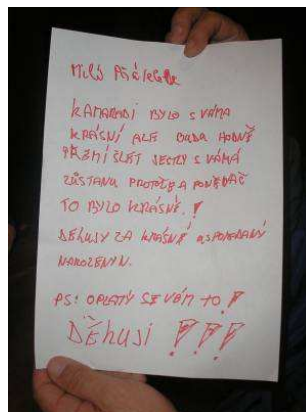 MILÁ PŘÁTELÉ
KAMARADI BYLO S VÁMA
KRÁSNÍ ALE BUDA HODNĚ
PŘEMÍŠLET JESTLY S VÁMÁ
ZŮSTANU PROTOŽE A PONĚVAČ
TO BYLO KRÁSNĚ.!
DĚKUJY ZA KRÁSNÉ USPOŘÁDANÝ
NAROZENYN.
PS: OPLATÝ SE VÁM TO!
DĚKUJI !!!